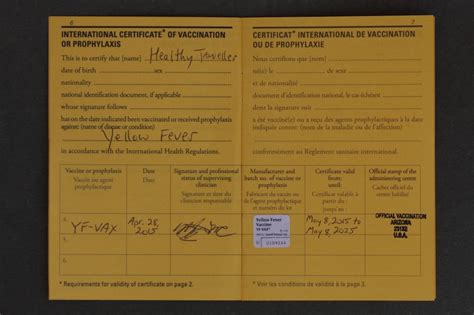 6
INTERNATIONAL CERTIFICATE* OF VACCINATION
OR PROPHYLAXIS
This is to certify that [name] Healthy Traveller
date of birth sex
nationality
national identification document, if applicable
whose signature follows
has on the date indicated been vaccinated or received prophylaxis
against: (name of disease or condition)
Yellow Fever
in accordance with the International Health Regulations.
7
CERTIFICAT* INTERNATIONAL DE VACCINATION
OU DE PROPHYLAXIE
Nous certifions que [nom]
né(e) le de sexe
et de nationalité
document d'identification national, le cas échéant
dont la signature suit
a été vacciné(e) ou a reçu des agents prophylactiques à la date
indiquée contre: (nom de la maladie ou de l'affection)
conformément au Règlement sanitaire international.
Vaccine or prophylaxis
Vaccin ou agent
prophylactique
Date
Date
Signature and professional
status of supervising
clinician
Signature et titre du
clinicien responsable
Manufacturer and
batch no. of vaccine or
prophylaxis
Fabricant du vaccin ou
de l'agent prophylactique
et numéro du lot
Certificate valid
from:
until:
Certificat valable à
partir du :
jusqu'au :
Official stamp of the
administering centre
Cachet officiel du
centre habilité
1.
YF-VAX
Apr. 28,
2015
Yellow Fever
Vaccine
YF-VAX
May 8, 2015 to
May 8, 2025
OFFICIAL VACCINATION
ARIZONA
U.S.A.
2.
* Requirements for validity of certificate on page 2.
* Voir les conditions de validité à la page 3.